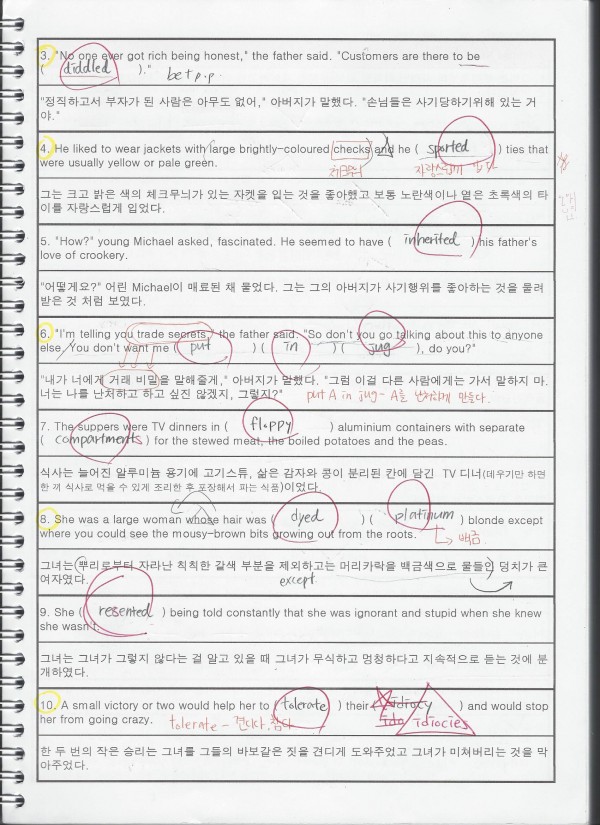 3. "No one ever got rich being honest," the father said. "Customers are there to be
( diddled )." be+p.p.
"정직하고서 부자가 된 사람은 아무도 없어," 아버지가 말했다. "손님들은 사기당하기위해 있는 거
야."
4. He liked to wear jackets with large brightly-coloured checks and he ( sported ) ties that
were usually yellow or pale green. 체크무늬 자랑스럽게 입다
그는 크고 밝은 색의 체크무늬가 있는 자켓을 입는 것을 좋아했고 보통 노란색이나 옅은 초록색의 타
이를 자랑스럽게 입었다.
5. "How?" young Michael asked, fascinated. He seemed to have ( inherited ) his father's
love of crookery.
"어떻게요?" 어린 Michael이 매료된 채 물었다. 그는 그의 아버지가 사기행위를 좋아하는 것을 물려
받은 것 처럼 보였다.
6. "I'm telling you trade secrets," the father said. "So don't you go talking about this to anyone
else. You don't want me ( put ) ( in ) ( jug ), do you?"
"내가 너에게 거래 비밀을 말해줄게," 아버지가 말했다. "그럼 이걸 다른 사람에게는 가서 말하지 마.
너는 나를 난처하고 하고 싶진 않겠지, 그렇지?" put A in jug - A를 난처하게 만들다.
7. The suppers were TV dinners in ( floppy ) aluminium containers with separate
( compartments ) for the stewed meat, the boiled potatoes and the peas.
식사는 늘어진 알루미늄 용기에 고기스튜, 삶은 감자와 콩이 분리된 칸에 담긴 TV 디너(데우기만 하면
한 끼 식사로 먹을 수 있게 조리한 후 포장해서 파는 식품)이었다.
8. She was a large woman whose hair was ( dyed ) ( platinum ) blonde except
where you could see the mousy-brown bits growing out from the roots. 백금
그녀는 뿌리로부터 자라난 칙칙한 갈색 부분을 제외하고는 머리카락을 백금색으로 물들인 덩치가 큰
여자였다. except
9. She ( resented ) being told constantly that she was ignorant and stupid when she knew
she wasn't.
그녀는 그녀가 그렇지 않다는 걸 알고 있을 때 그녀가 무식하고 멍청하다고 지속적으로 듣는 것에 분
개하였다.
10. A small victory or two would help her to ( tolerate ) their ( idiocy ) and would stop
her from going crazy. tolerate - 견디다, 참다 ido idiocies
한 두 번의 작은 승리는 그녀를 그들의 바보같은 짓을 견디게 도와주었고 그녀가 미쳐버리는 것을 막
아주었다.